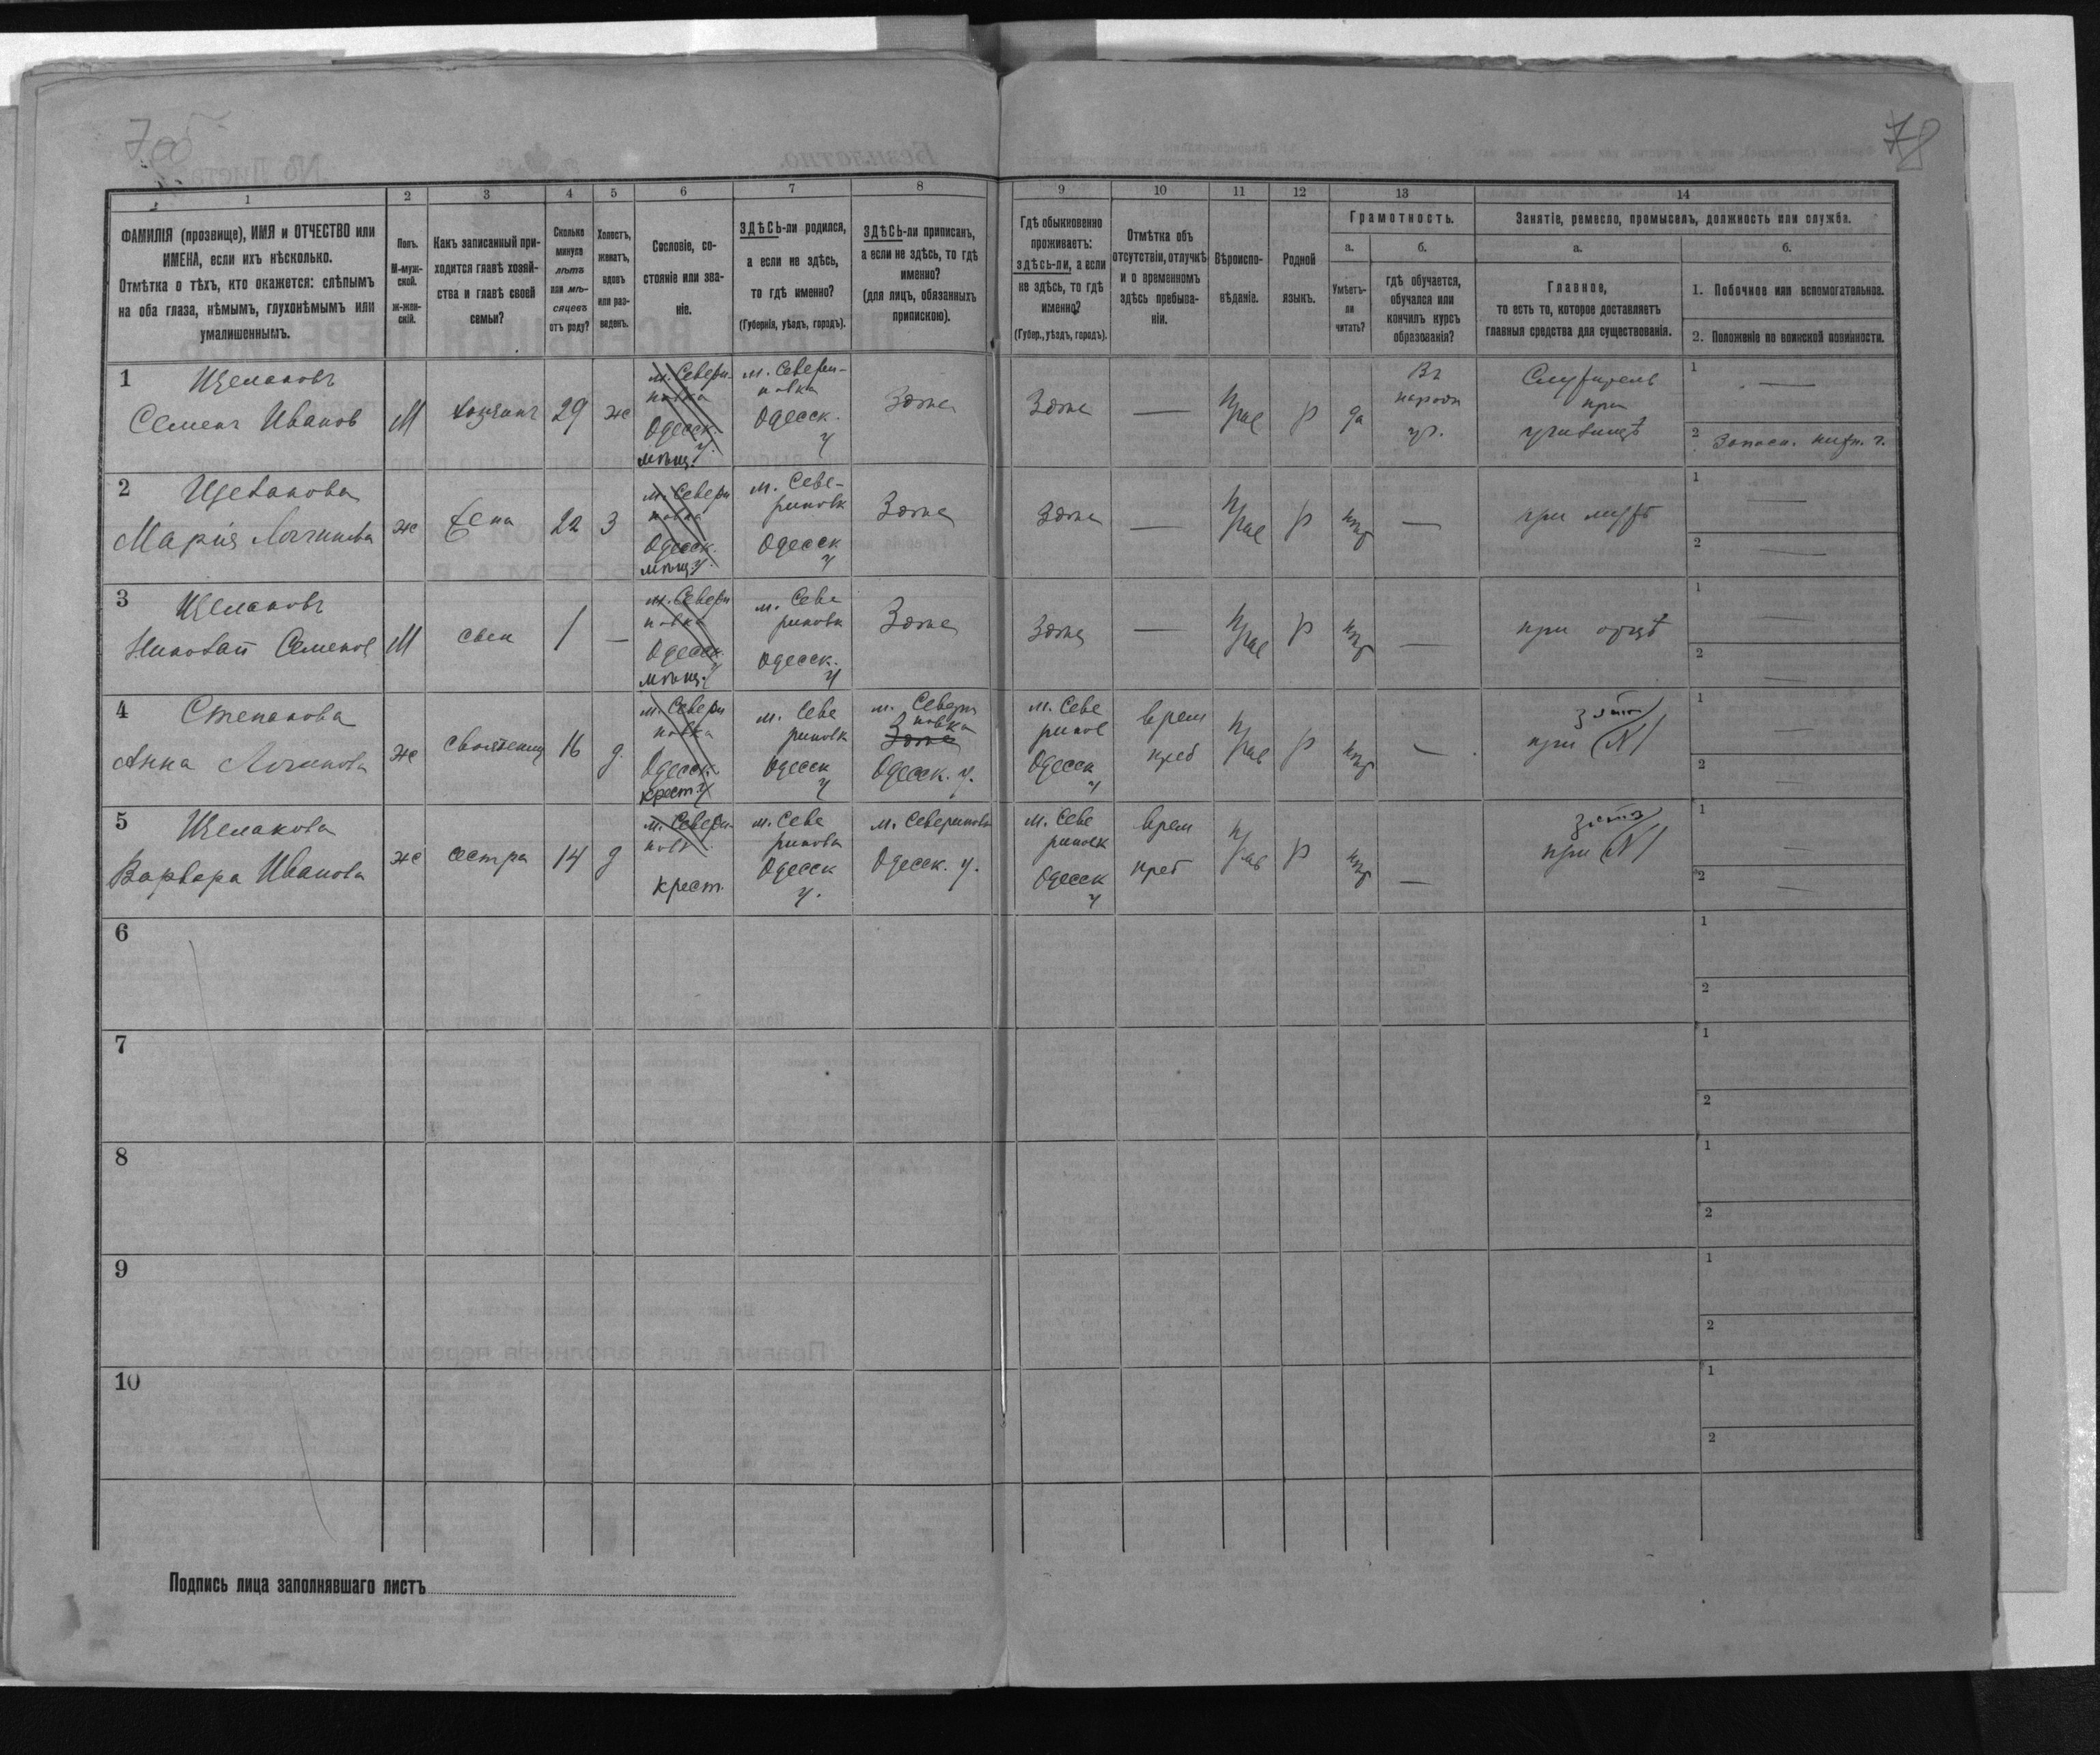 78
1
2
3
4
5
6
7
8
9
10
11
12
13
14
ФАМИЛІЯ (прозвище), ИМЯ и ОТЧЕСТВО или
ИМЕНА, если ихъ нѣсколько.
Отмѣтка о тѣхъ, кто окажется: слѣпымъ
на оба глаза, нѣмымъ, глухонѣмымъ или
умалишеннымъ.
Полъ.
М-муж-
ской.
Ж-жен-
скій.
Какъ записанный при-
ходится главѣ хозяй-
ства и главѣ своей
семьи?
Сколько
минуло
лѣтъ
или мѣ-
сяцевъ
отъ роду?
Холостъ,
женатъ,
вдовъ
или раз-
веденъ.
Сословіе, со-
стояніе или зва-
ніе.
ЗДѢСЬ-ли родился,
а если не здѣсь,
то гдѣ именно?
(Губернія, уѣздъ, городъ).
ЗДѢСЬ-ли приписанъ,
а если не здѣсь, то гдѣ
именно?
(для лицъ, обязанныхъ
припискою).
Гдѣ обыкновенно
проживаетъ:
здѣсь-ли, а если
не здѣсь, то гдѣ
именно?
(Губер., уѣздъ, городъ).
Отмѣтка объ
отсутствіи, отлучкѣ
и о временномъ
здѣсь пребыва-
ніи.
Вѣроиспо-
вѣданіе.
Родной
языкъ.
Грамотность.
а.
Умѣетъ-
ли
читать?
б.
гдѣ обучается,
обучался или
кончилъ курсъ
образованія?
Занятіе, ремесло, промыселъ, должность или служба.
а.
Главное,
то есть то, которое доставляетъ
главныя средства для существованія.
б.
1. Побочное или вспомогательное.
2. Положеніе по воинской повинности.
1
Семенъ Иванов
М
хозяинъ
29
ж
м. Севери-
новка
Одесск.
у.
мѣщ.
м. Севери-
новка
Одесск.
у
Здѣсь
Здѣсь
—
Прав
р
да
Въ
народн
уч.
Служитель
при
училищѣ
1
—
2 Запасн. ниж. ч.
2
Марія
ж
Жена
22
З
м. Севери
новка
Одесск.
мѣщ. у.
м. Севе-
риновк
Одесск
у
Здѣсь
Здѣсь
—
Прав
р
нѣт
—
при мужѣ
1
—
2
—
3
Николай Семенов
М
сын
1
—
м. Севери
новка
Одесск.
у
мѣщ.
м. Севе
риновк
Одесск.
у
Здѣсь
Здѣсь
—
Прав
р
нѣт
—
при отцѣ
1
—
2
—
4
Степанова
Анна
ж
свояченица
16
д.
м. Севери
новка
Одесск.
крест у
м. Севе
риновк
Одесск
у
м. Севери
новка
Здѣсь
Одесск. у.
м. Севе
ринов
Одесск
у
врем
преб
Прав
р
нѣт
—
при зятѣ N1
1
—
2
—
5
Варвара Иванова
ж
сестра
14
д
м. Севери-
нов
крест.
м. Севе
риновк
Одесск
у.
м. Севериновк
Одесск. у.
м. Севе
риновк
Одесск
у
врем
преб
Прав
р
нѣт
—
при N1
1
—
2
—
6
1
2
7
1
2
8
1
2
9
1
2
10
1
2
Подпись лица заполнявшаго листъ